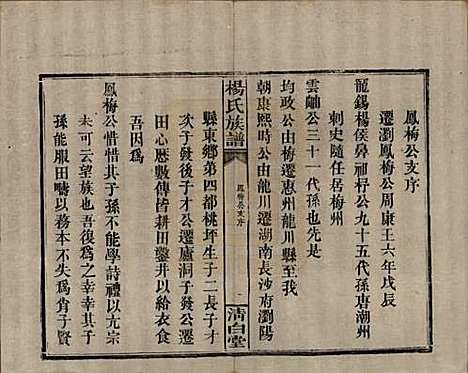 鳳梅公支序
遷瀏鳳梅公周康王六年戊辰
寵錫楊侯鼻祖杼公九十五代孫唐潮州
刺史隨任居梅州
雲岫公三十一代孫也先是
均政公由梅遷惠州龍川縣至我
朝康熙時公由龍川遷湖南長沙府瀏陽
楊氏族譜
鳳梅公支序
一
清白堂
縣東鄉第四都桃坪生子二長子才
次子發後子才公遷廬洞子發公遷
田心歷數傳皆耕田鑿井以給衣食
吾因爲
鳳梅公惜惜其子孫不能學詩禮以亢宗
未可云望族也吾復爲之幸幸其子
孫能服田疇以務本不失爲肖子賢